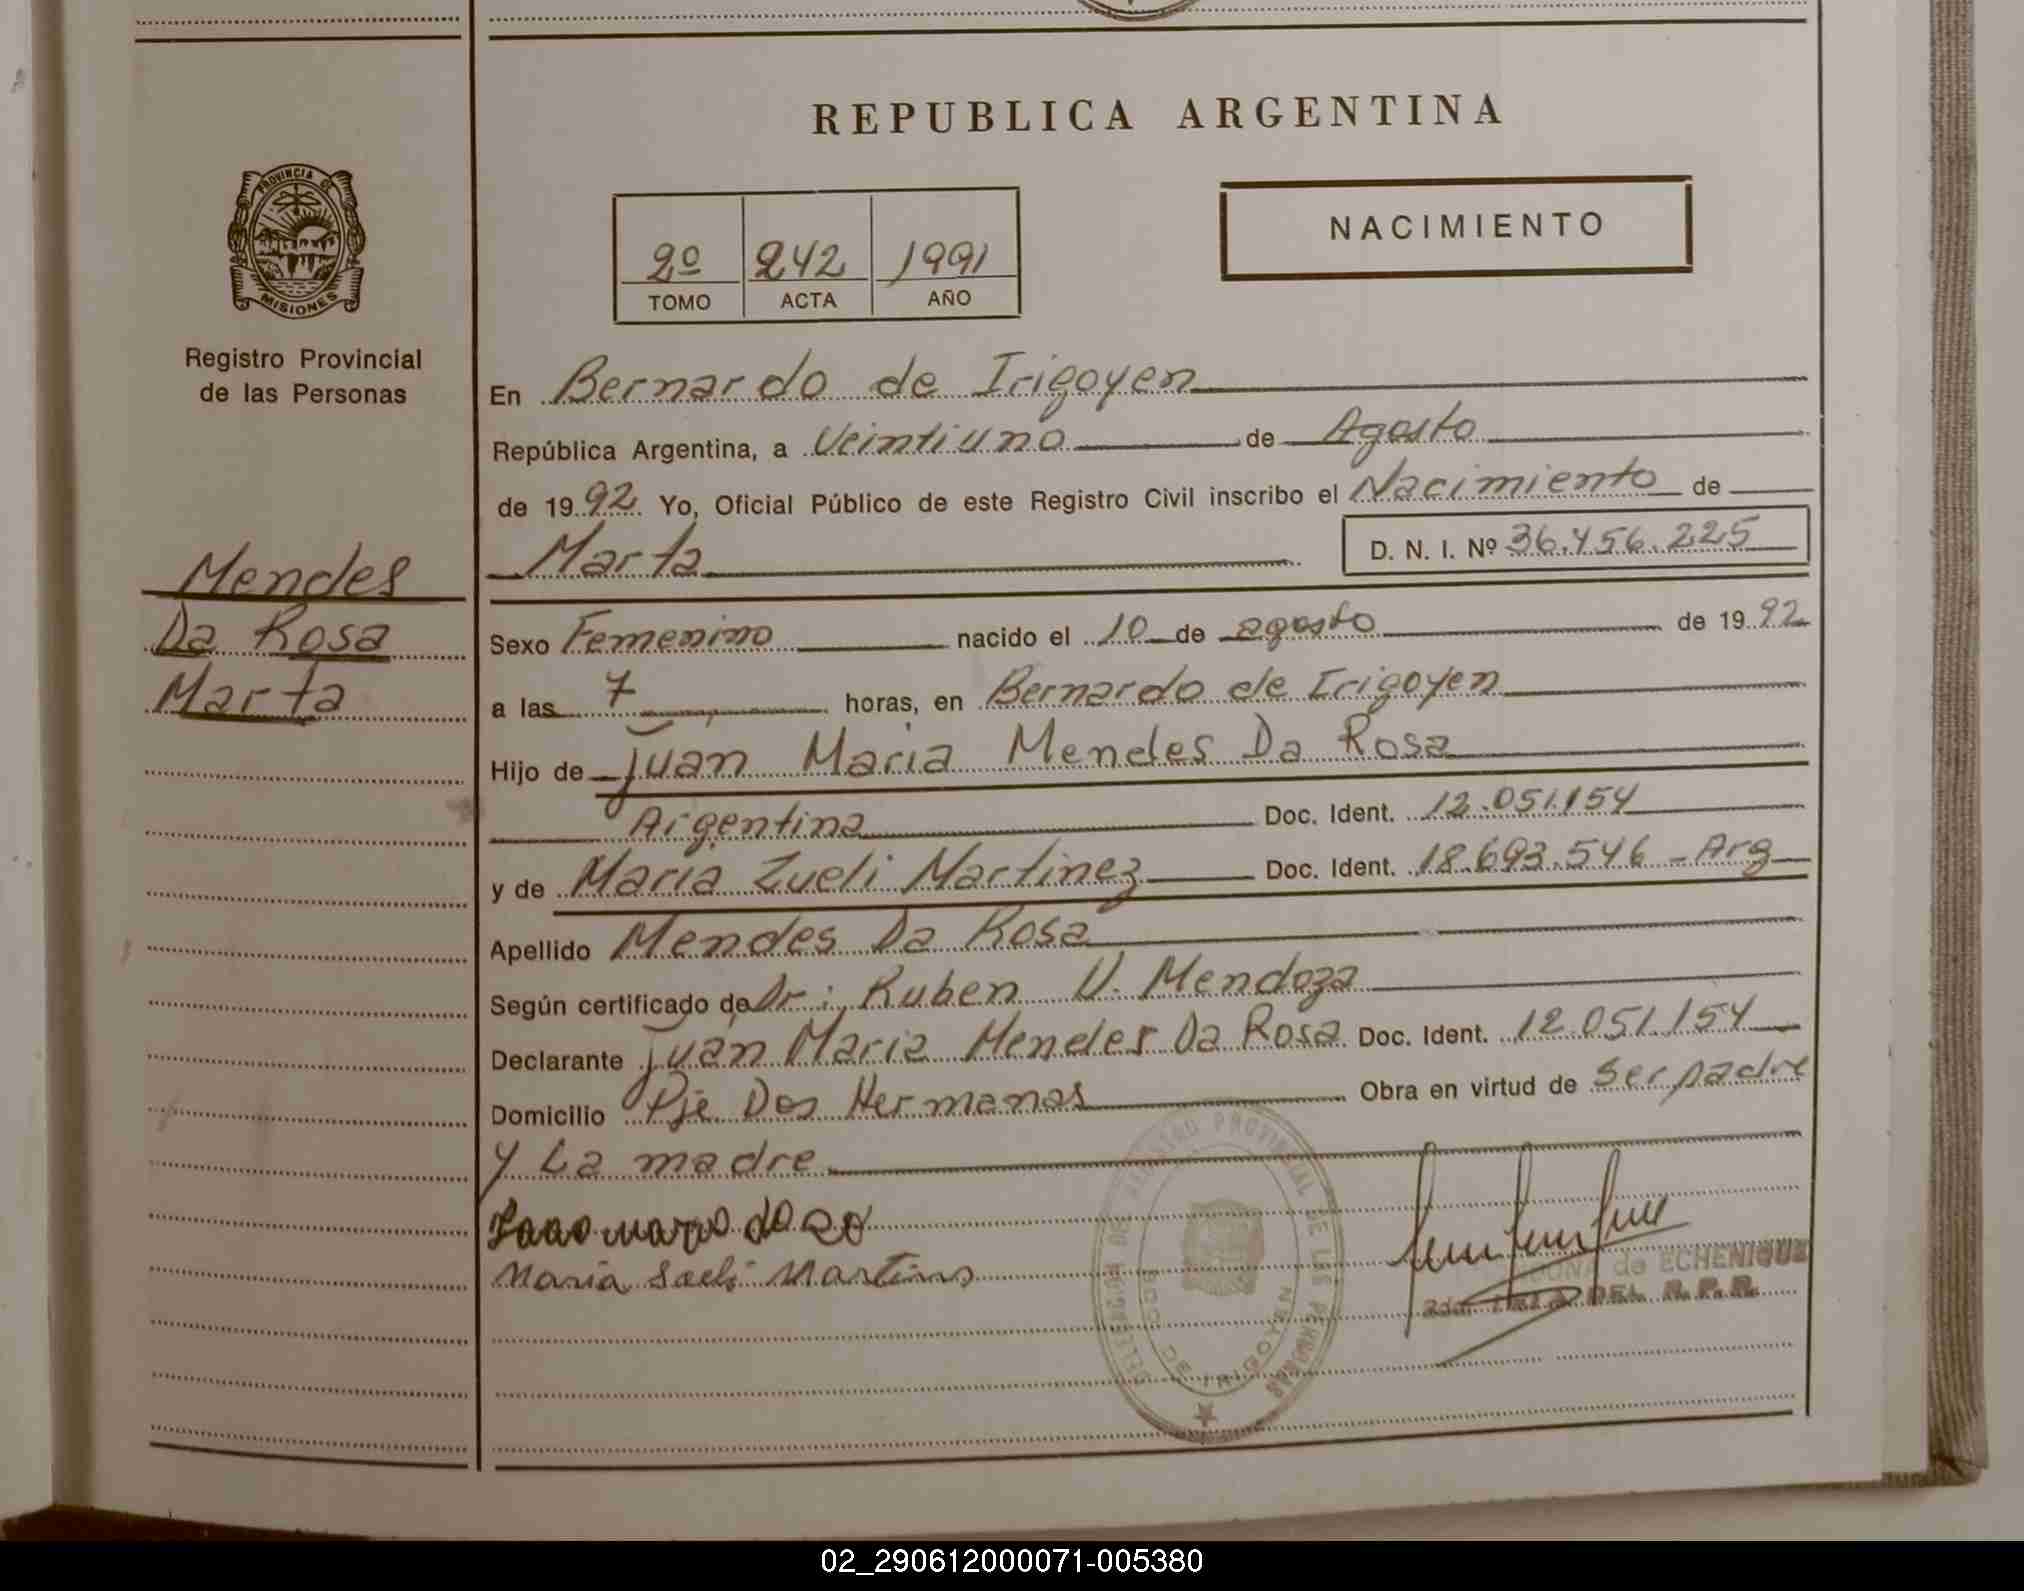 REPUBLICA ARGENTINA
PROVINCIA DE
MISIONES
Registro Provincial
de las Personas
2º 242 1991
TOMO ACTA AÑO
NACIMIENTO
Mendes
Da Rosa
Marta
En Bernardo de Irigoyen
República Argentina, a Veintiuno de Agosto
de 1992 Yo, Oficial Público de este Registro Civil inscribo el Nacimiento de
Marta D. N. I. Nº 36.456.225
Sexo Femenino nacido el 10 de agosto de 1992
a las 7 horas, en Bernardo de Irigoyen
Hijo de Juan Maria Mendes Da Rosa
Argentina Doc. Ident. 12.051.154
y de Maria Zueli Martinez Doc. Ident. 18.693.546 - Arg
Apellido Mendes Da Rosa
Según certificado de Dr: Ruben V. Mendoza
Declarante Juan Maria Mendes Da Rosa Doc. Ident. 12.051.154
Domicilio Pje Dos Hermanas Obra en virtud de Ser padre
y La madre
Maria Martins
de ECHENIQUE
DEL R. P. P.
REGISTRO PROVINCIAL DE LAS PERSONAS
BDO DE IRIGOYEN
02_290612000071-005380